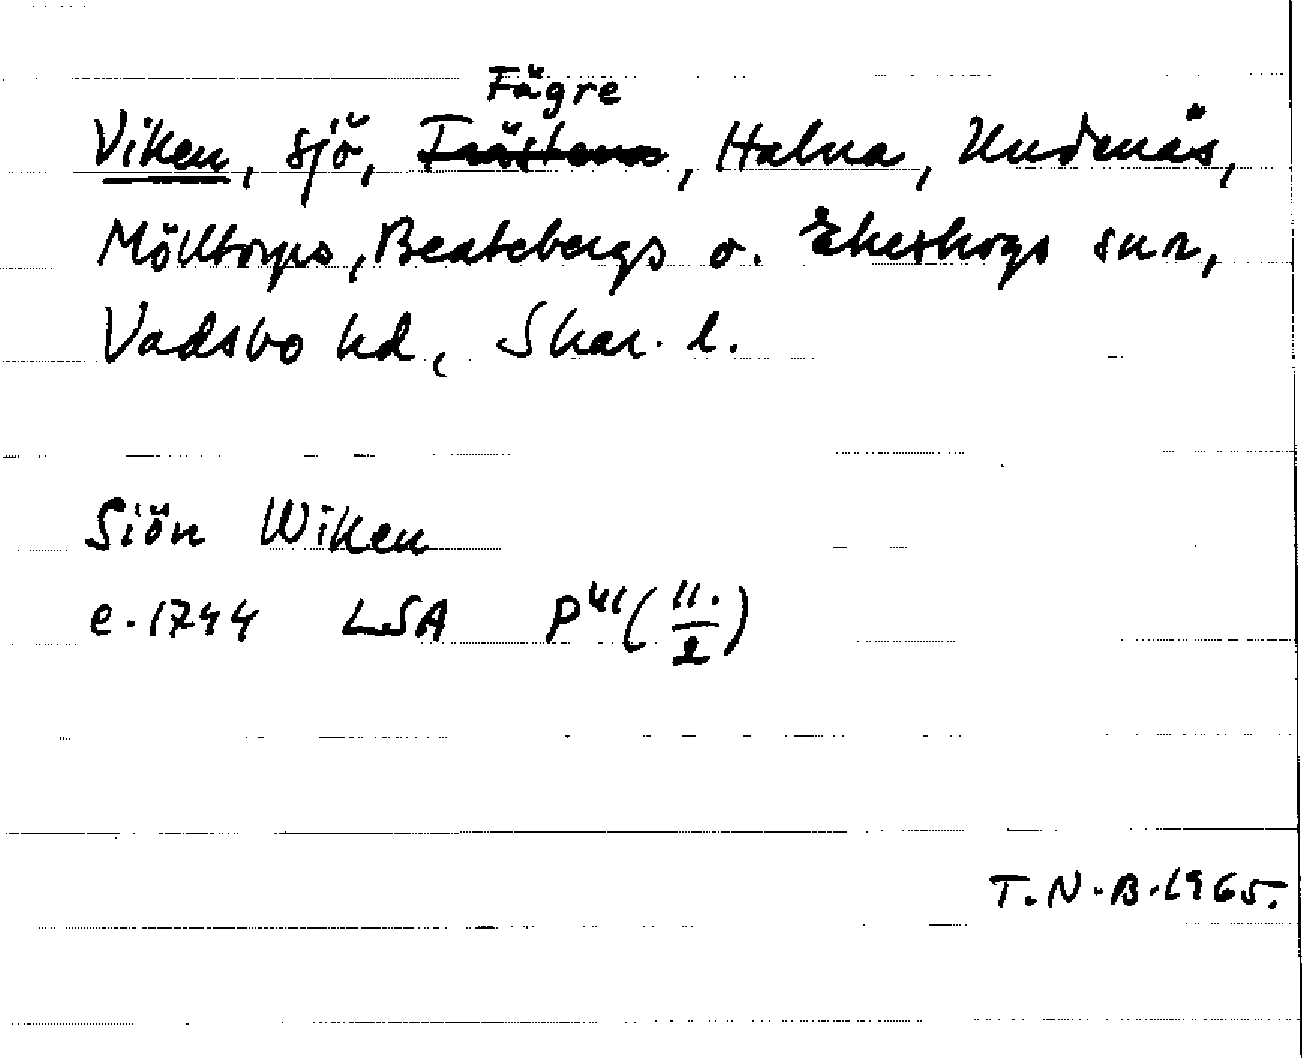 Fägre
Viken, sjö, Trästena, Halna, Undenäs,
Mölltorps, Beatebergs o. Ekeskogs snr,
Vadsbo hd, Skar. l.
Siön Wiken
e. 1744 LSA P41 (11./2)
T.N.B. 1965.